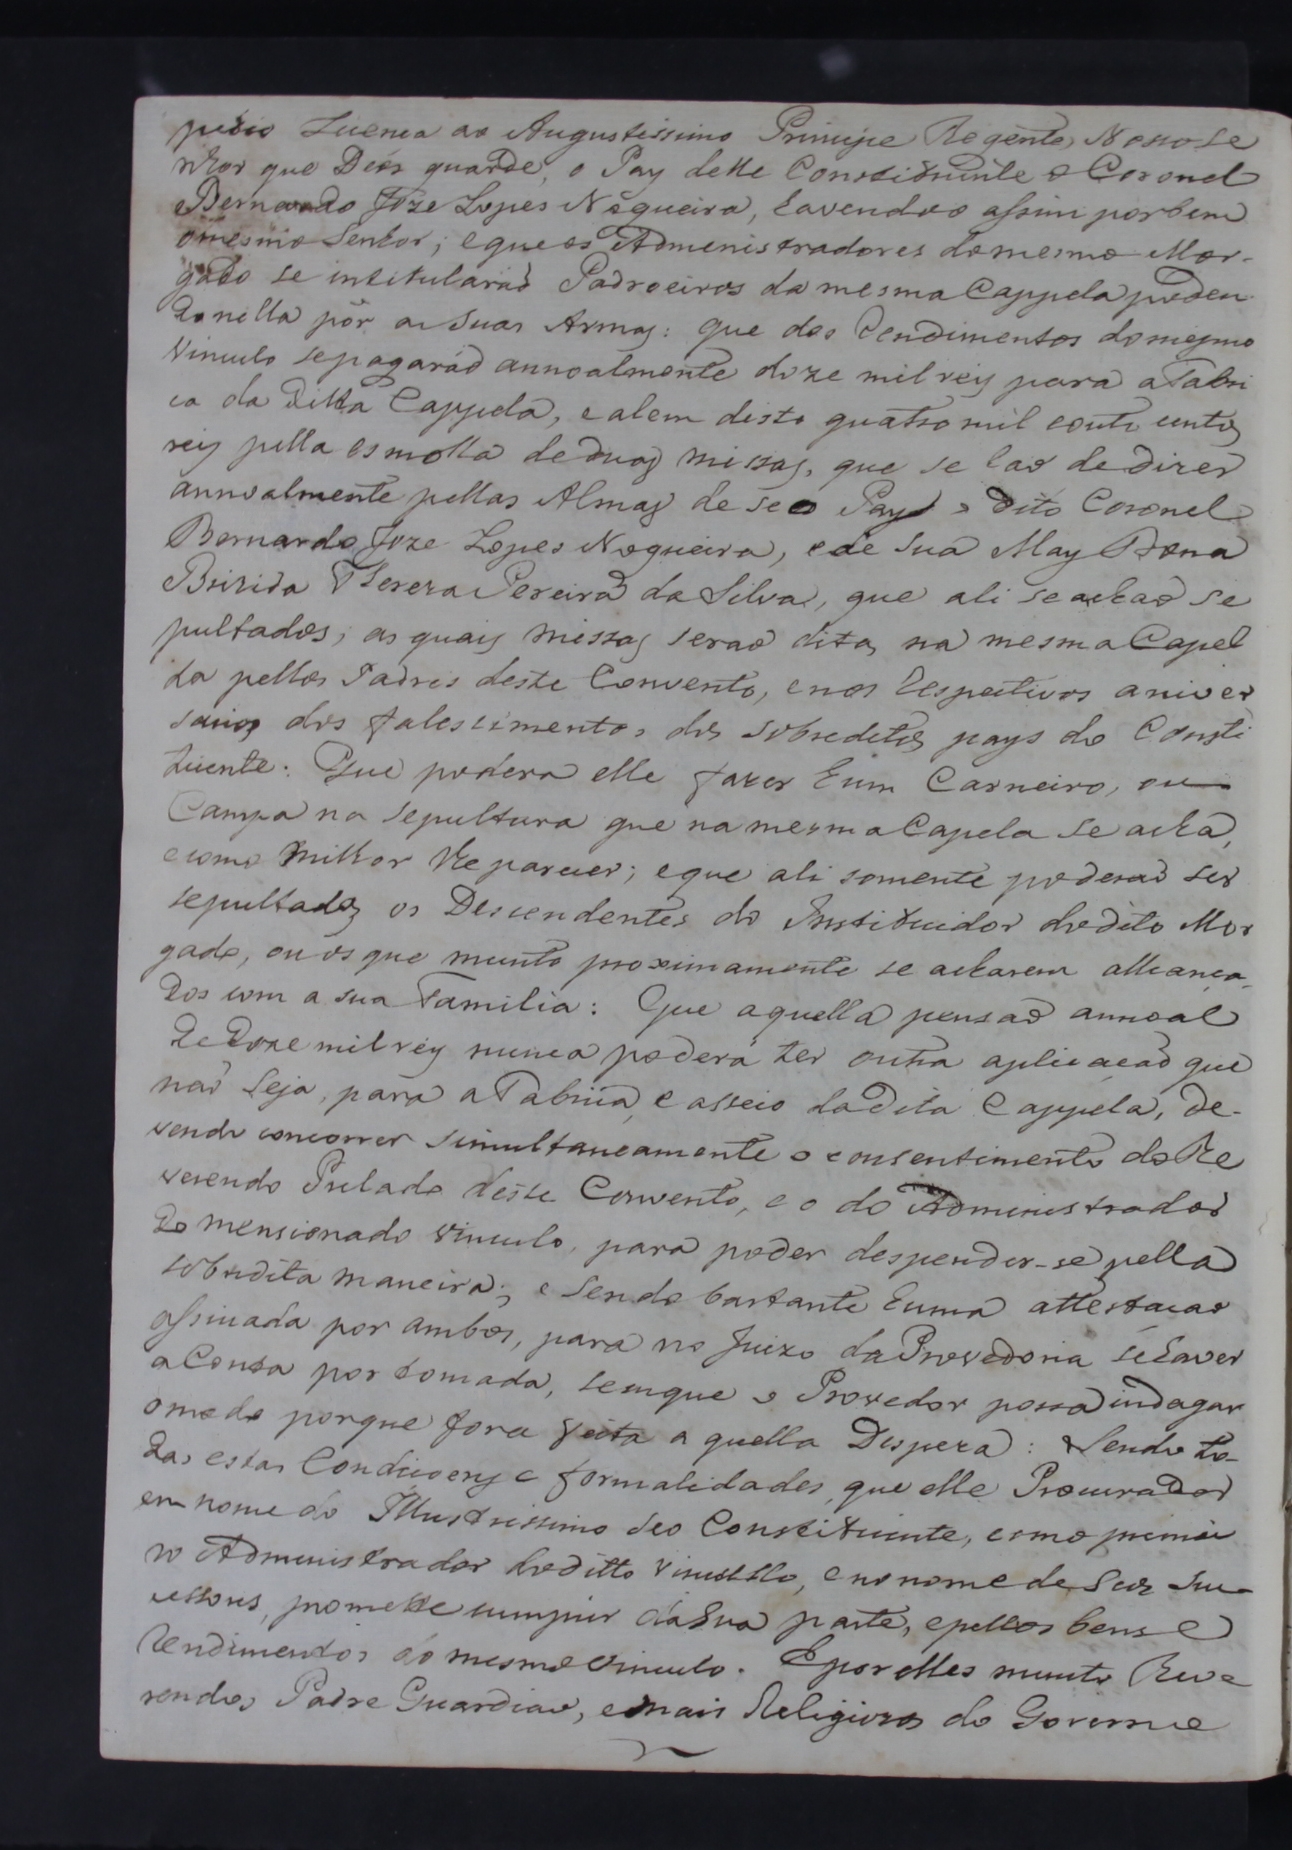 pedio Licenca ao Augustissimo Principe Regente, Nosso Se
nhor que Deos guarde, o Pay delle Constituinte o Coronel
Bernardo Joze Lopes Nogueira, havendoo assim por bem
omesmo Senhor; e que os Administradores domesmo Mor-
gado se intitularaõ Padroeiros da mesma Cappela poden
do nella pôr as suas Armas: que dos Rendimentos do mesmo
Vinculo se pagaraõ annoalmente doze mil reis para a Fabri
ca da ditta Cappela, e alem disto quatro mil e outo centos
reis pella esmolla de duas missas, que se haõ de dizer
annoalmente pellas Almas de seo Pay o dito Coronel
Bernardo Joze Lopes Nogueira, e de sua May Dona
Brizida Thereza Pereira da Silva, que ali se achaõ se
pultados, as quais missas seraõ ditas na mesma Capel
la pellos Padres deste Convento, e nos Respectivos aniver
sarios dos falescimentos dos sobreditos pays do Consti
tuinte: Que podera elle fazer hum Carneiro, ou
Campa na sepultura que na mesma Capela se acha,
e como milhor lhe parecer; e que ali somente poderaõ ser
sepultados os Descendentes do Instituidor do dito Mor
gado, ou os que muito proximamente se acharem alliança-
dos com a sua Familia: Que aquella pensaõ annoal
de doze mil reis nunca poderá ter outra aplicacaõ que
naõ seja, para a Fabrica, e asseio da dita Cappela, de-
vendo concorrer simultaneamente o consentimento do Re
verendo Prelado deste Convento, e o do Administrador
do mensionado vinculo, para poder despender-se pella
sobredita maneira; e sendo bastante huma attestacao
assinada por ambos, para no Juizo da Provedoria se haver
a Conta por tomada, sem que o Provedor possa indagar
o modo porque fora feita a quella Despeza: Sendo to-
das estas Condicoens e formalidades, que elle Procurador
em nome do Illustrissimo seo Constituinte, como primei
ro Administrador do ditto vinculo, e no nome de seos Su-
cessores, promette cumprir da sua parte, e pellos bens e
Rendimentos do mesmo vinculo. E por elles muito Reve
rendos Padre Guardiao, e mais Religiozos do Governo